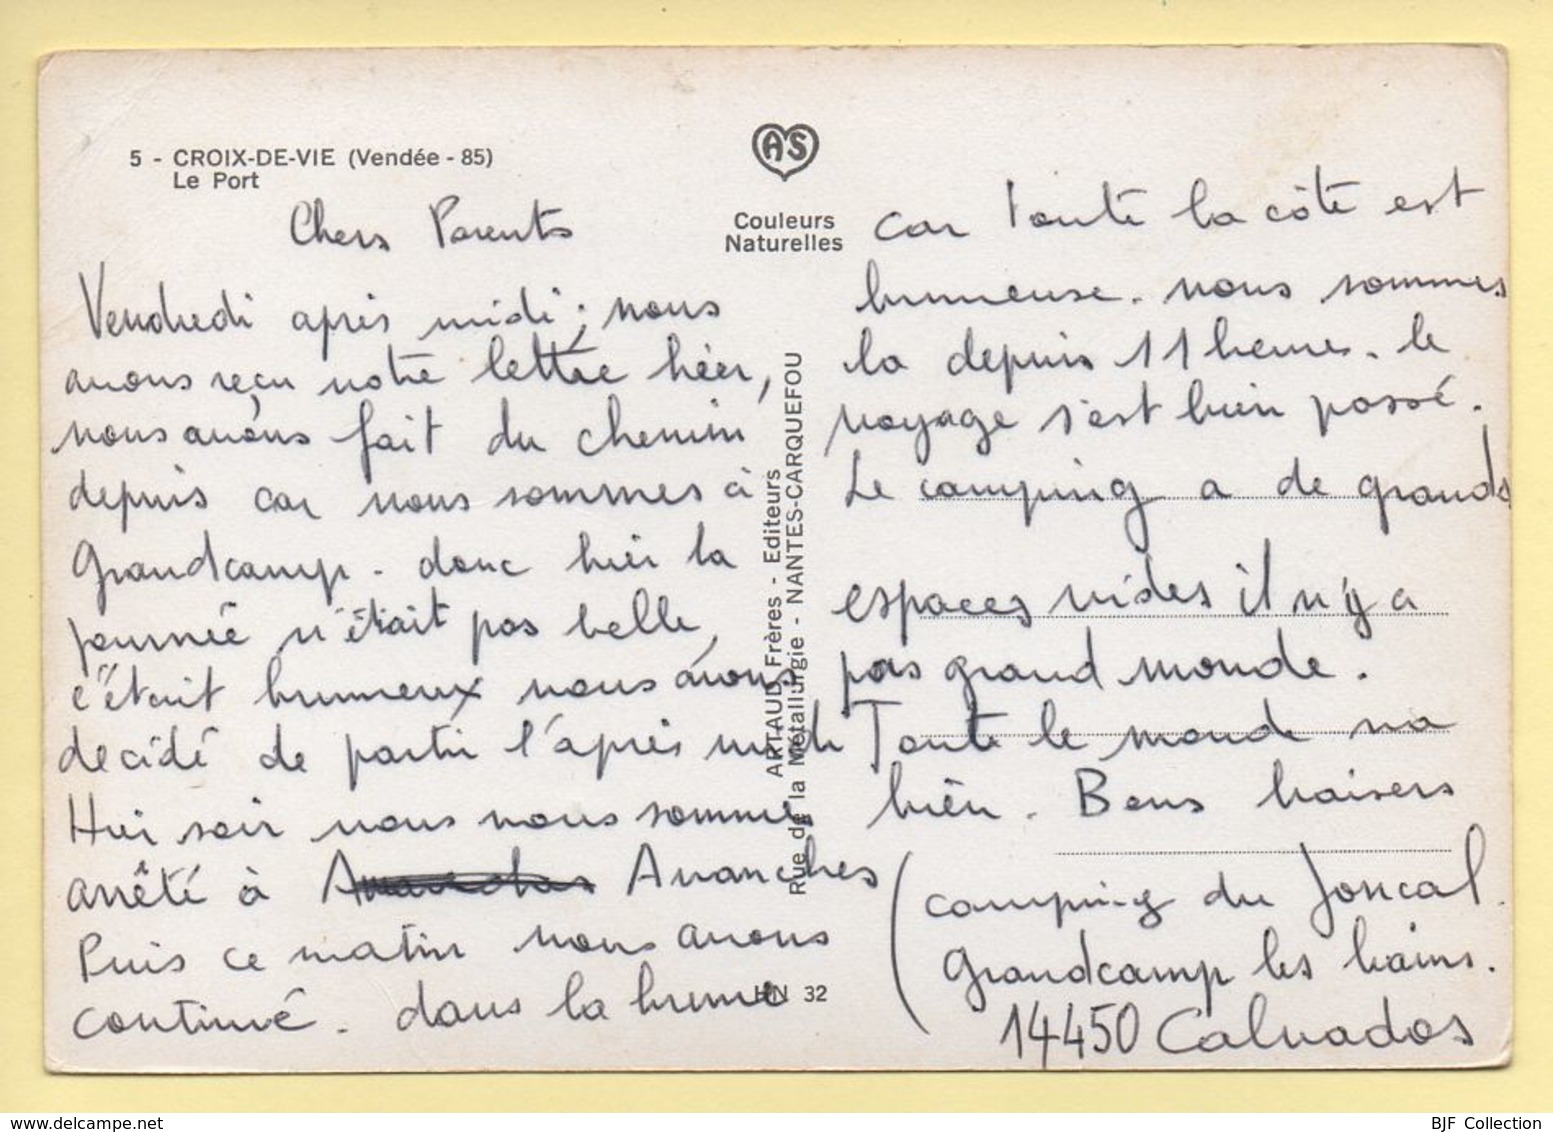 5 - CROIX-DE-VIE (Vendée - 85)
Le Port
Chers Parents
Vendredi après midi; nous
avons reçu votre lettre hier,
nous avons fait du chemin
depuis car nous sommes à
Grandcamp. donc hier la
journée n'était pas belle,
c'était brumeux nous avons
decidé de partir l'après midi
Hier soir nous nous sommes
arrêté à Avranches
Puis ce matin nous avons
continué. dans la brume
AS
Couleurs
Naturelles
ARTAUD Frères - Editeurs
Rue de la Métallurgie - NANTES-CARQUEFOU
HN 32
car toute la côte est
brumeuse. nous sommes
la depuis 11 heures. le
voyage s'est bien passé.
Le camping a de grands
espaces vides il n'y a
pas grand monde.
Toute le monde va
bien. Bons baisers
(camping du Joncal.
Grandcamp les bains.
14450 Calvados
BJF Collection